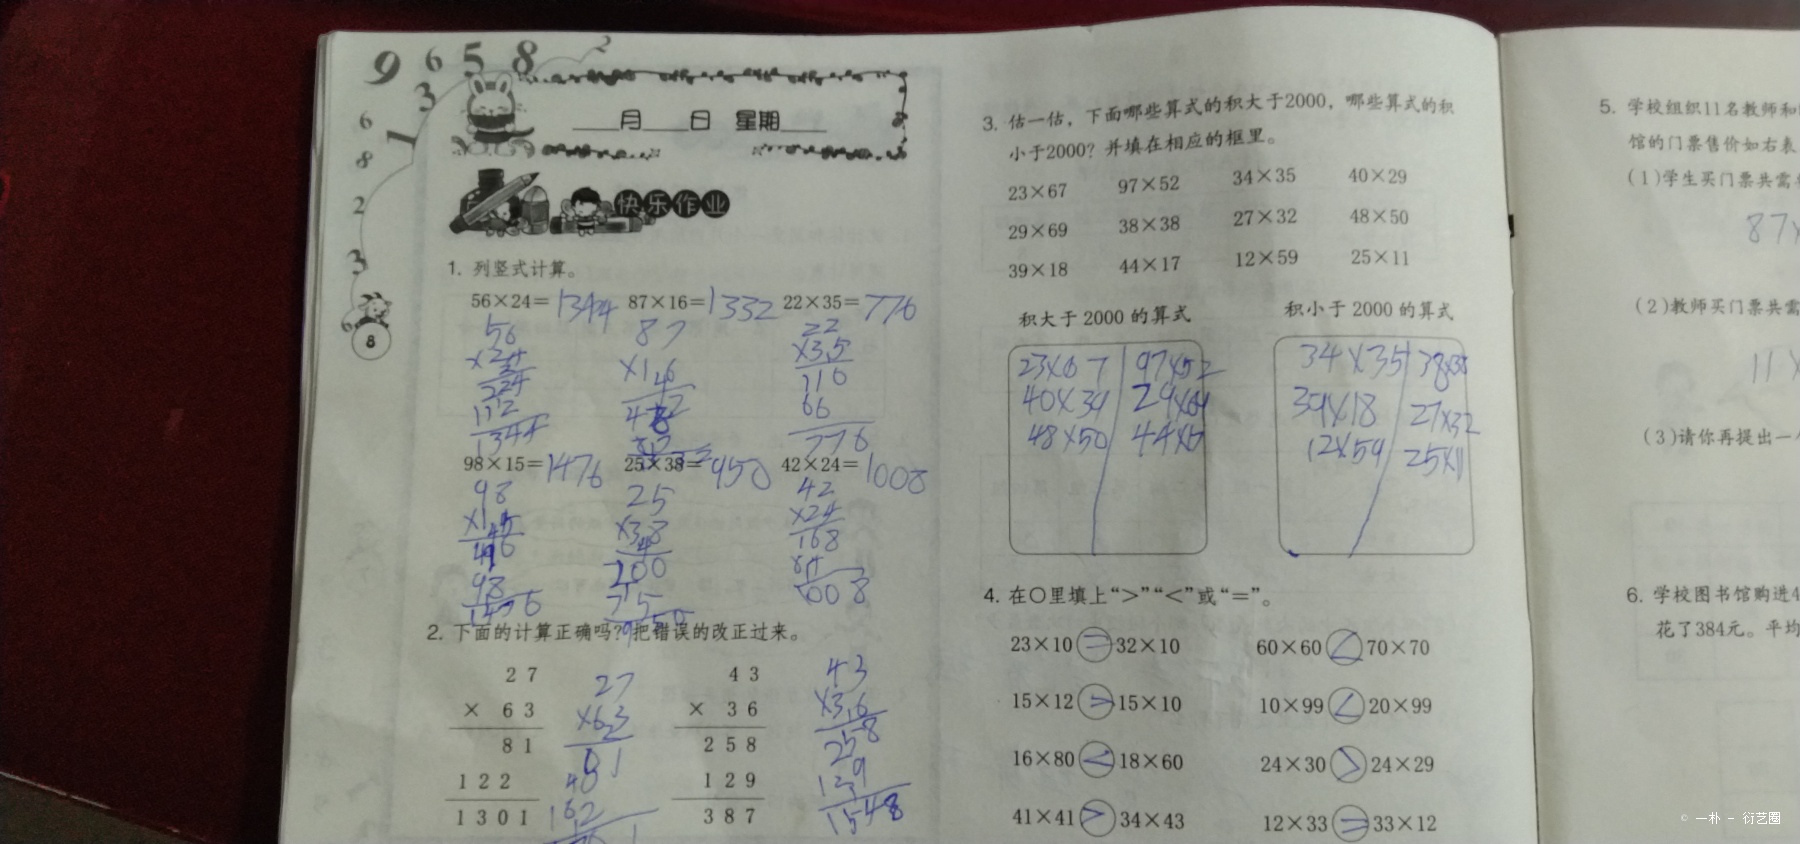 9 6 5 8 2
3
6 1
8
2
3
6
8
___月___日 星期___
快乐作业
1. 列竖式计算。
56×24=1344 87×16=1332 22×35=776
56 87 22
×24 ×16 ×35
224 116
112 66
1344 776
98×15=1476 25×38=950 42×24=1008
98 25 42
×15 ×38 ×24
200 168
98 75 84
1476 950 1008
2. 下面的计算正确吗?把错误的改正过来。
2 7 27 4 3 43
× 6 3 ×63 × 3 6 ×36
8 1 2 5 8 258
1 2 2 162 1 2 9 129
1 3 0 1 3 8 7 1548
3. 估一估，下面哪些算式的积大于2000，哪些算式的积
小于2000？并填在相应的框里。
23×67 97×52 34×35 40×29
29×69 38×38 27×32 48×50
39×18 44×17 12×59 25×11
积大于 2000 的算式 积小于 2000 的算式
23×67 97×52 34×35 38×38
40×39 29×69 39×18 27×32
48×50 12×59 25×11
4. 在○里填上“>”“<”或“=”。
23×10 = 32×10 60×60 < 70×70
15×12 > 15×10 10×99 < 20×99
16×80 < 18×60 24×30 > 24×29
41×41 > 34×43 12×33 = 33×12
5. 学校组织11名教师和
馆的门票售价如右表
(1)学生买门票共需
87×
(2)教师买门票共需
11×
(3)请你再提出一
6. 学校图书馆购进4
花了384元。平均
© 一朴 - 衍艺圈